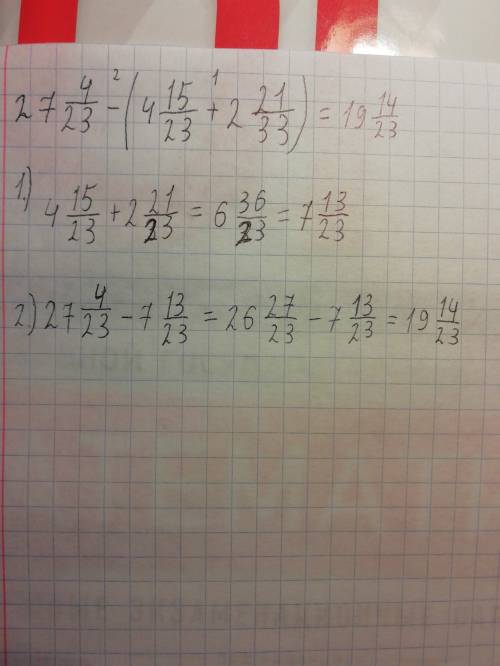 27 4/23 - (4 15/23 + 2 21/33) = 19 14/23
1.) 4 15/23 + 2 21/23 = 6 36/23 = 7 13/23
2.) 27 4/23 - 7 13/23 = 26 27/23 - 7 13/23 = 19 14/23